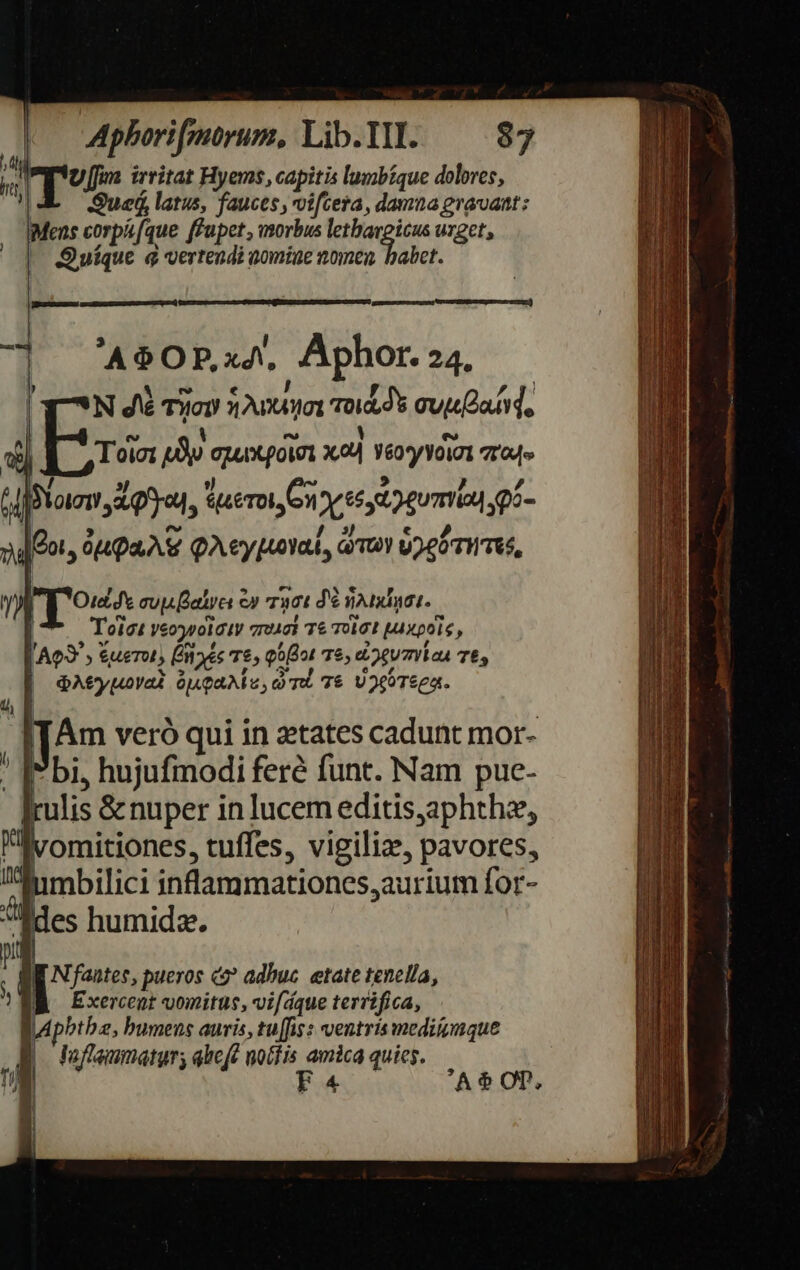 Aphoriſmorum, Lib. III. 87
TUſſim irritat Hyems, capitis lumbíque dolores,
Queis, latus, fauces, viſcera, damna gravant:
Mens corpúſque ſtupet, morbus lethargicus urget,
Quíque à vertendi nomine nomen habet.
ἈΦΟΡ. κδʹ. Aphor. 24.
ἘΝ δὲ τῇσιν ἡλικίῃσι τοιάδε συμβαίνει.
Τοῖσι μὲν σμικροῖσι καὶ νεογνοῖσι παι-
δίοισιν, ἄφθαι, ἔμετοι, βῆχες, ἀγρυπνίαι, φό-
βοι, ὀμφαλοῦ φλεγμοναί, ὤτων ὑγρότητες.
Τοιάδε συμβαίνει ἐν τῇσι δὲ ἡλικίῃσι.
Τοῖσι νεογνοῖσιν παισί τε τοῖσι μικροῖς,
Ἄφθ', ἔμετοι, βῆχές τε, φόβοι τε, ἀγρυπνίαι τε,
Φλεγμοναὶ ὀμφαλίς, ὦτά τε ὑγρότεραι.
JAm verò qui in ætates cadunt mor-
bi, hujuſmodi ferè ſunt. Nam pue-
rulis & nuper in lucem editis, aphthæ,
vomitiones, tuſſes, vigiliæ, pavores,
umbilici inflammationes, aurium ſor-
des humidæ.
INfantes, pueros & adhuc ætate tenella,
Exercent vomitus, viſáque terrifica,
Aphthæ, humens auris, tuſſis: ventris mediúmque
Inflammatur, abeſt noctis amica quies.
F 4 ἈΦΟΡ.